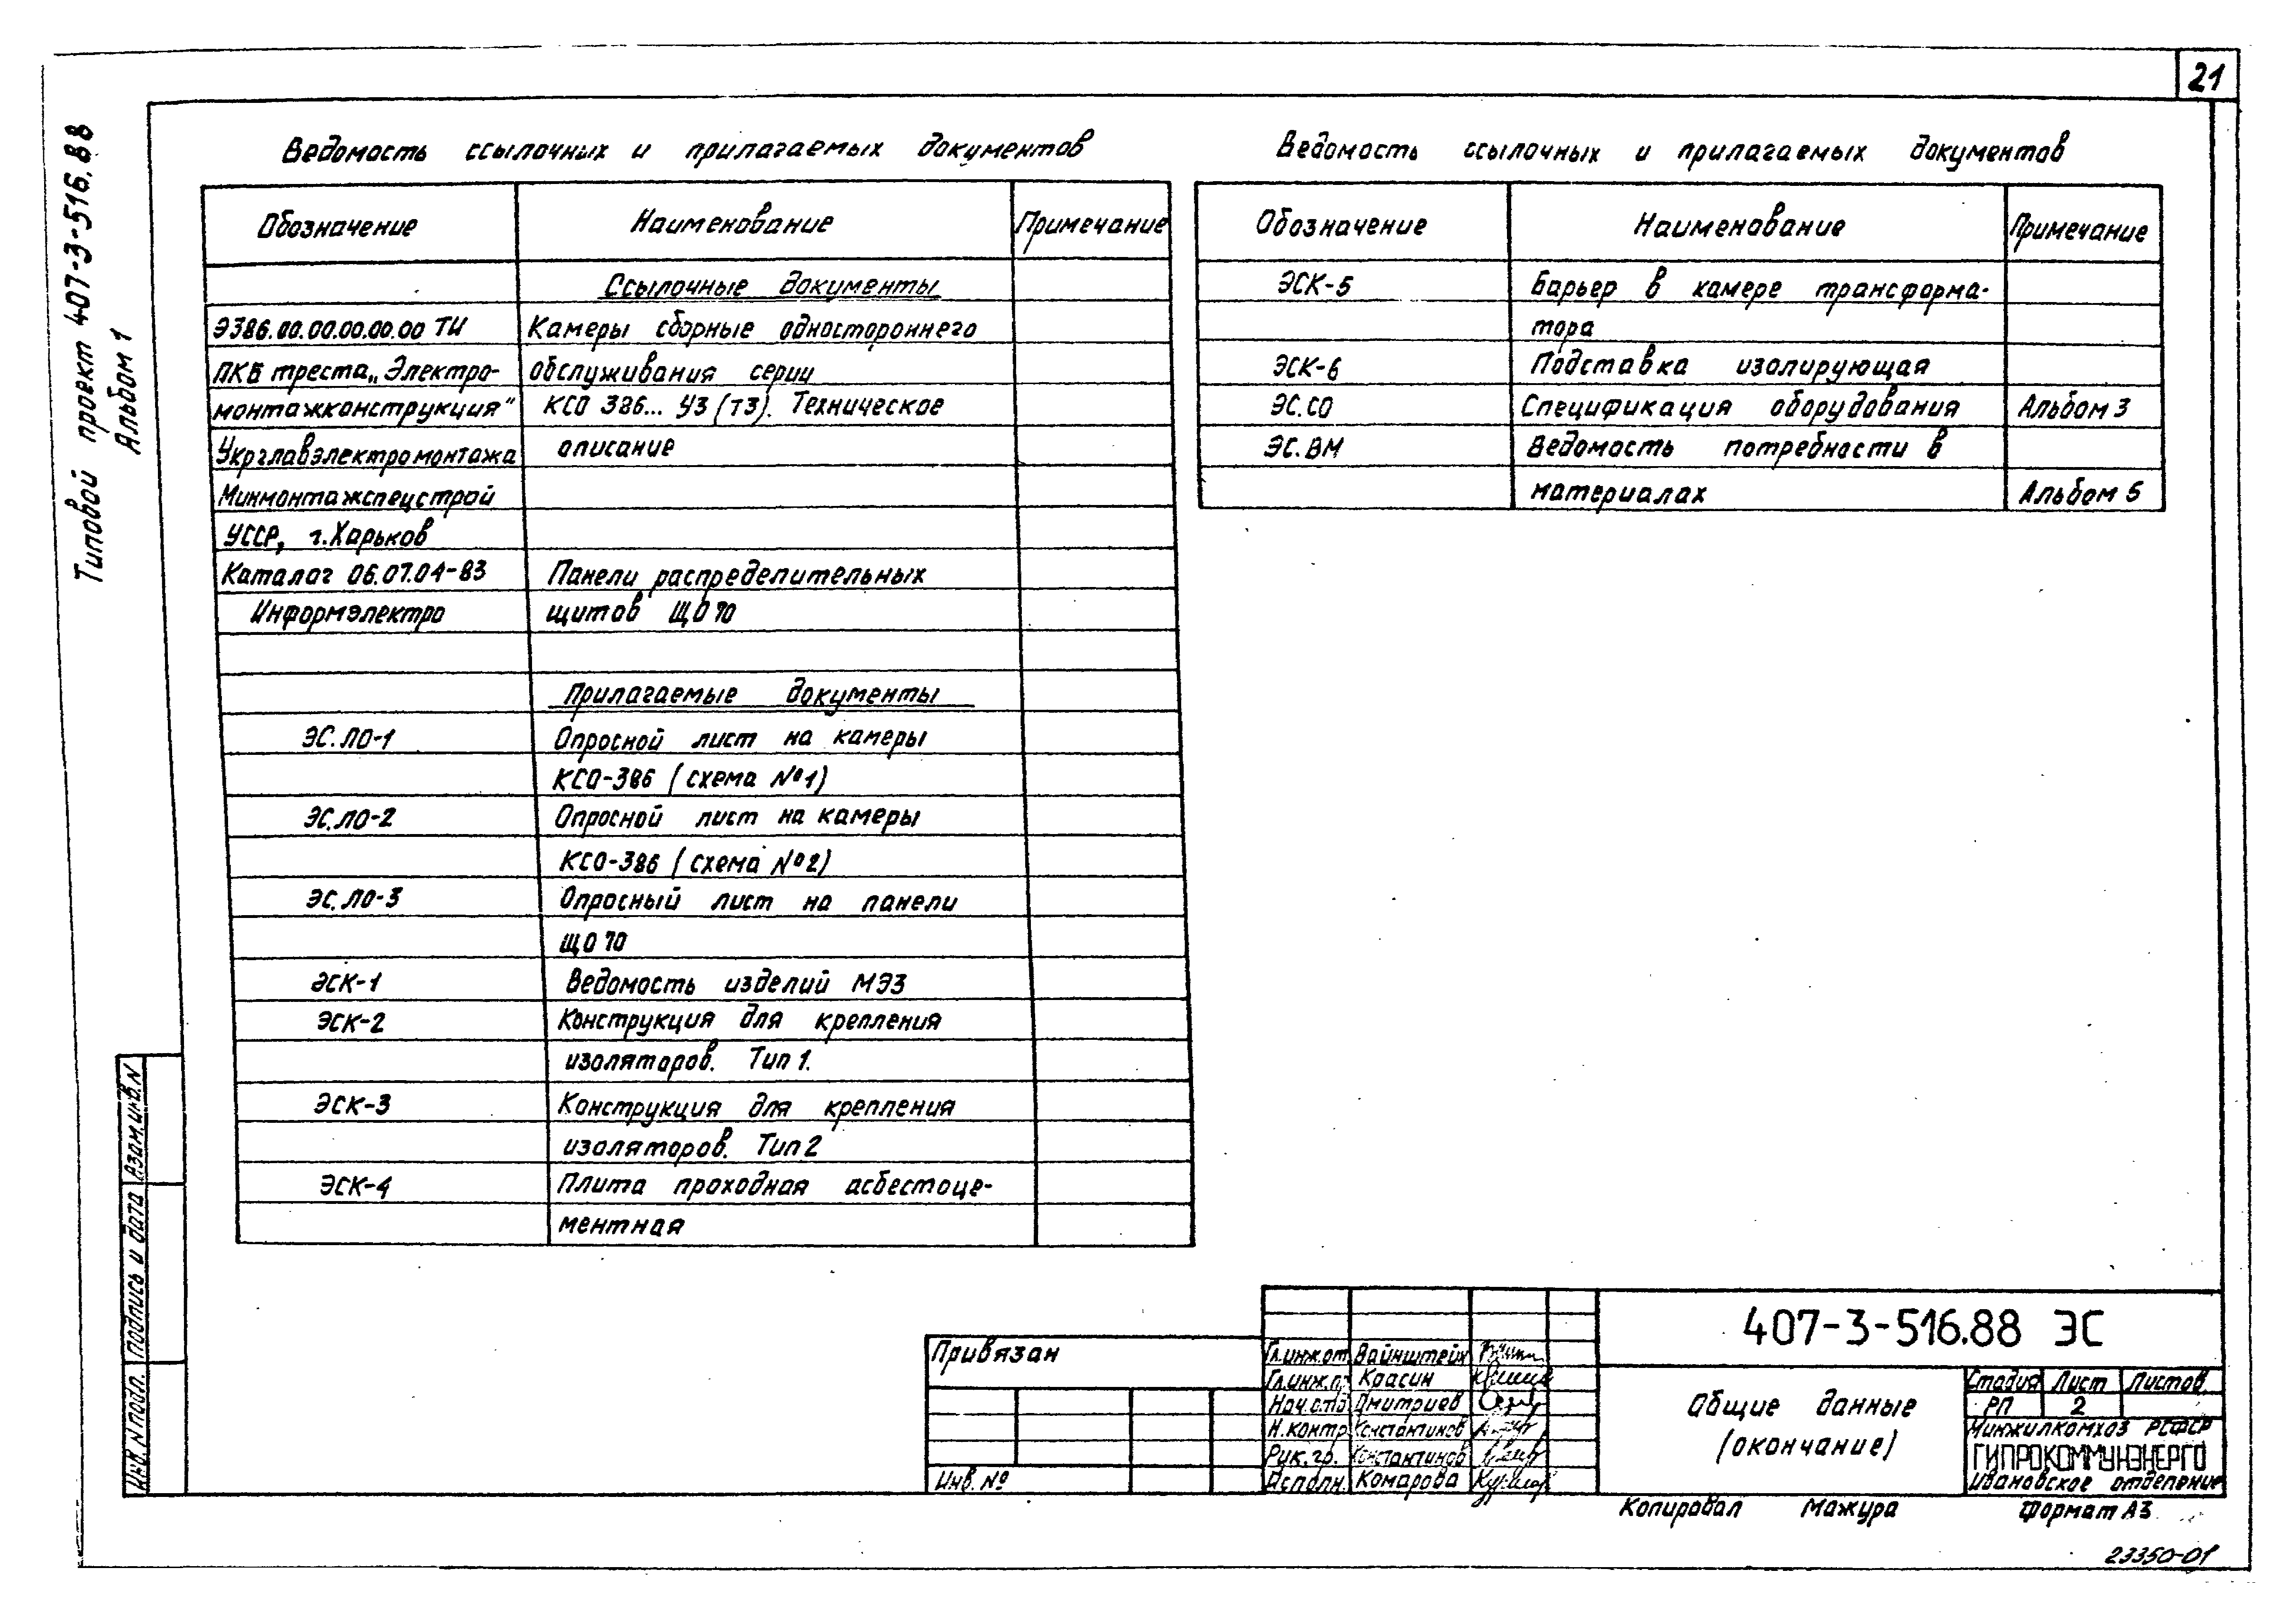 21
Типовой проект 407-3-516.88
Альбом 1
Ведомость ссылочных и прилагаемых документов
Обозначение Наименование Примечание
Ссылочные документы
Э386.00.00.00.00.00 ТИ Камеры сборные одностороннего
ПКБ треста „Электро- обслуживания серии
монтажконструкция" КСО 386... У3 (Т3). Техническое
Укрглавэлектромонтажа описание
Минмонтажспецстрой
УССР, г. Харьков
Каталог 06.07.04-83 Панели распределительных
Информэлектро щитов ЩО 70
Прилагаемые документы
ЭС.ЛО-1 Опросной лист на камеры
КСО-386 (схема №1)
ЭС.ЛО-2 Опросной лист на камеры
КСО-386 (схема №2)
ЭС.ЛО-3 Опросный лист на панели
ЩО 70
ЭСК-1 Ведомость изделий МЭЗ
ЭСК-2 Конструкция для крепления
изоляторов. Тип 1.
ЭСК-3 Конструкция для крепления
изоляторов. Тип 2
ЭСК-4 Плита проходная асбестоце-
ментная
Ведомость ссылочных и прилагаемых документов
Обозначение Наименование Примечание
ЭСК-5 Барьер в камере трансформа-
тора
ЭСК-6 Подставка изолирующая
ЭС.СО Спецификация оборудования Альбом 3
ЭС.ВМ Ведомость потребности в
материалах Альбом 5
Взам.инв.N
Подпись и дата
Инв.N подл.
Привязан
Инв. №
Гл.инж.от Вайнштейн
Гл.инж.п Красин
Нач.отд Дмитриев
Н.контр Константинов
Рук.гр. Константинов
Исполн. Комарова
407-3-516.88 ЭС
Общие данные
(окончание)
Стадия Лист Листов
РП 2
Минжилкомхоз РСФСР
ГИПРОКОММУНЭНЕРГО
Ивановское отделение
Копировал Мажура Формат А3
23350-01